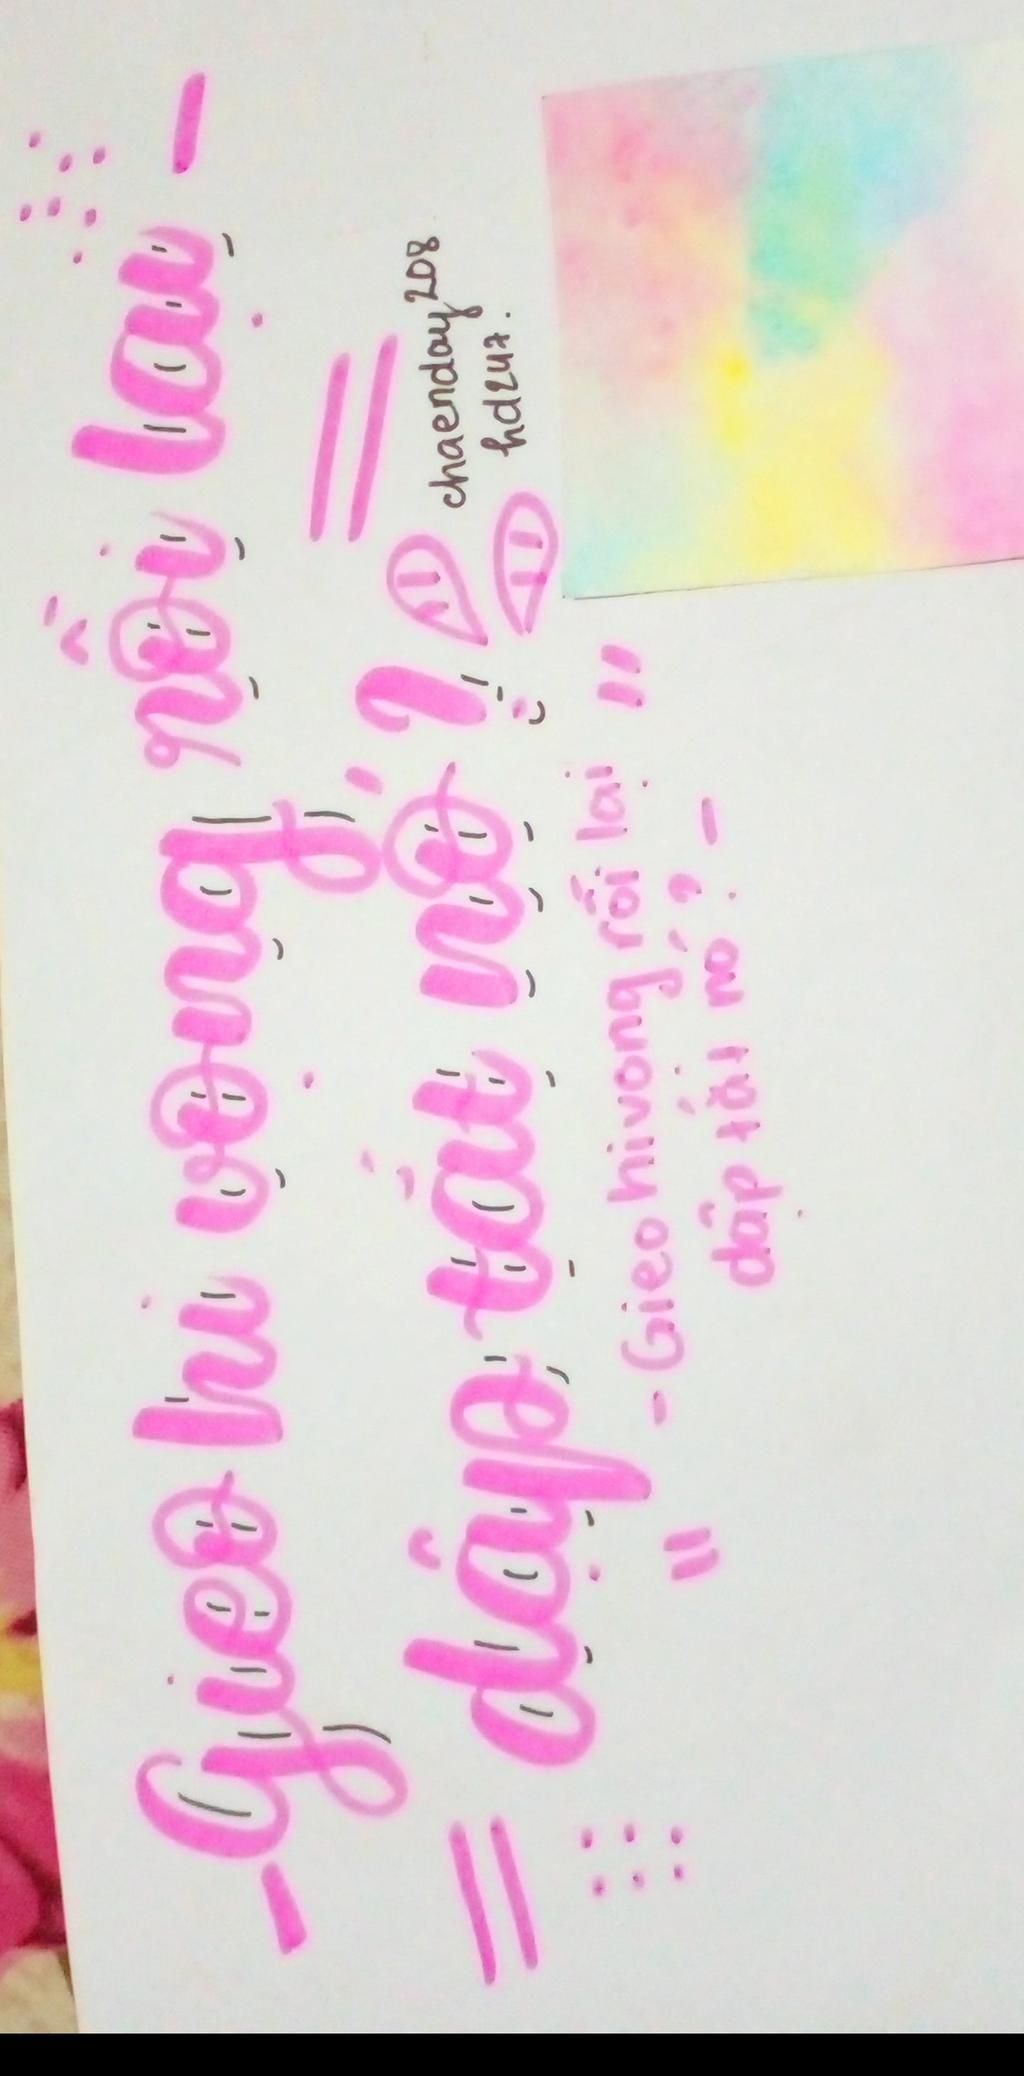 - Gieo hi vọng rồi lại -
dập tắt nó ?
chaenday208
hd247.
" - Gieo hi vọng rồi lại "
dập tắt nó ? -